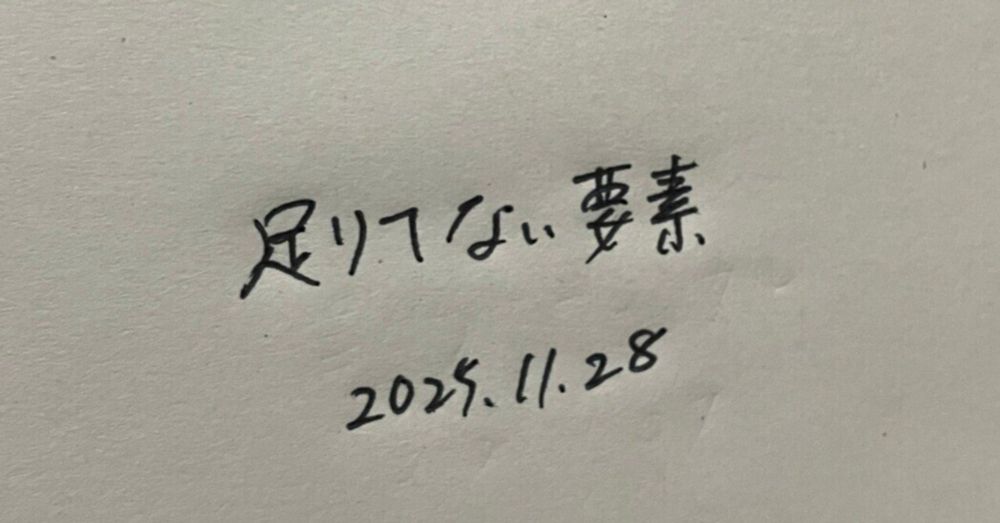 足りてない要素
2025.11.28